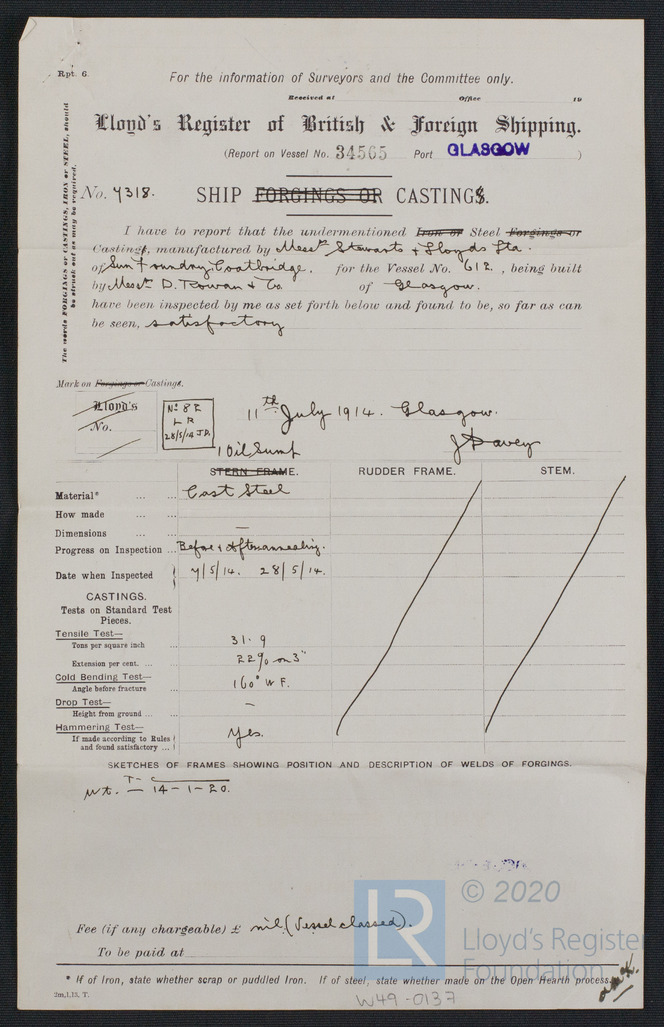 Rpt. 6.
For the information of Surveyors and the Committee only.
Received at Office 19
Lloyd's Register of British & Foreign Shipping.
(Report on Vessel No. 34565 Port GLASGOW )
The words FORGINGS or CASTINGS, IRON or STEEL, should
be struck out as may be required.
No. 4318. SHIP FORGINGS OR CASTINGS.
I have to report that the undermentioned Iron or Steel Forgings or
Castings, manufactured by Messrs Stewarts & Lloyds Ltd.
of Sun Foundry, Coatbridge, for the Vessel No. 612, being built
by Messrs D. Rowan & Co. of Glasgow.
have been inspected by me as set forth below and found to be, so far as can
be seen, satisfactory
Mark on Forgings or Castings.
Lloyd's
No.
No 82
LR
28/5/14 J.D.
11th July 1914. Glasgow.
J Davey
1 Oil Sump
STERN FRAME. RUDDER FRAME. STEM.
Material* ... ... Cast Steel
How made ... ...
Dimensions ... ... —
Progress on Inspection ... Before & After annealing.
Date when Inspected 7/5/14. 28/5/14.
CASTINGS.
Tests on Standard Test
Pieces.
Tensile Test—
Tons per square inch ... 31.9
Extension per cent. ... ... 22% on 3"
Cold Bending Test—
Angle before fracture ... 160° W F.
Drop Test—
Height from ground ... ... —
Hammering Test—
If made according to Rules
and found satisfactory ... Yes.
SKETCHES OF FRAMES SHOWING POSITION AND DESCRIPTION OF WELDS OF FORGINGS.
T- c
Wt. — 14-1-20.
Fee (if any chargeable) £ nil (Vessel classed).
To be paid at
* If of Iron, state whether scrap or puddled Iron. If of steel, state whether made on the Open Hearth process.
2m,1,13. T.
W49-0137
LR
© 2020
Lloyd's Register
Foundation